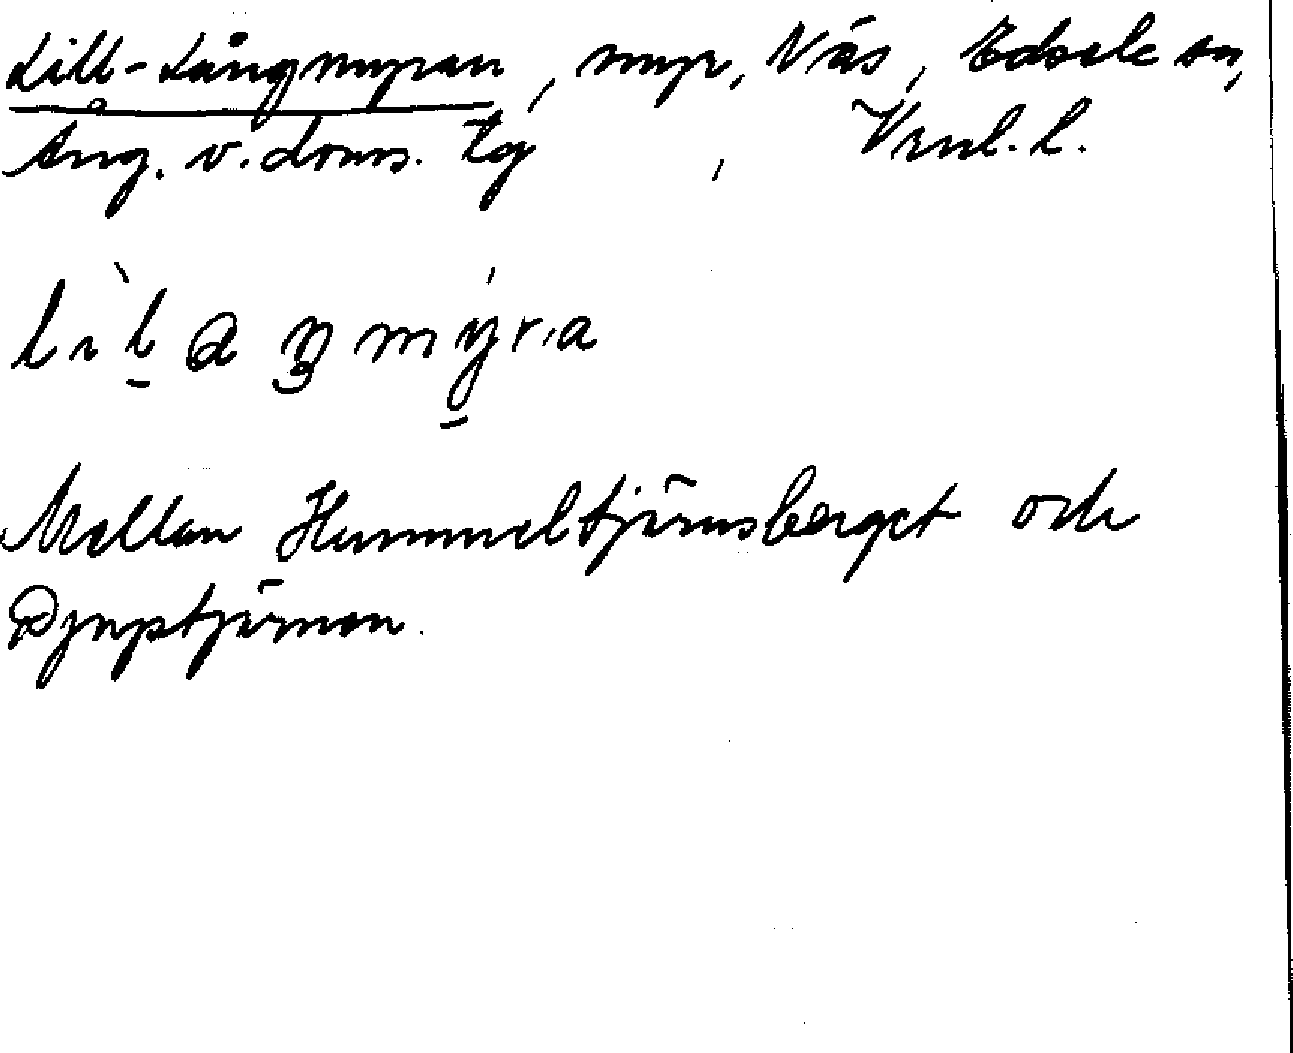 Lill-Långmyran, myr, Näs, Edsele sn,
Ång. v. doms. tg , Vrnl. l.
Mellan Hummeltjärnsberget och
Djuptjärnen.